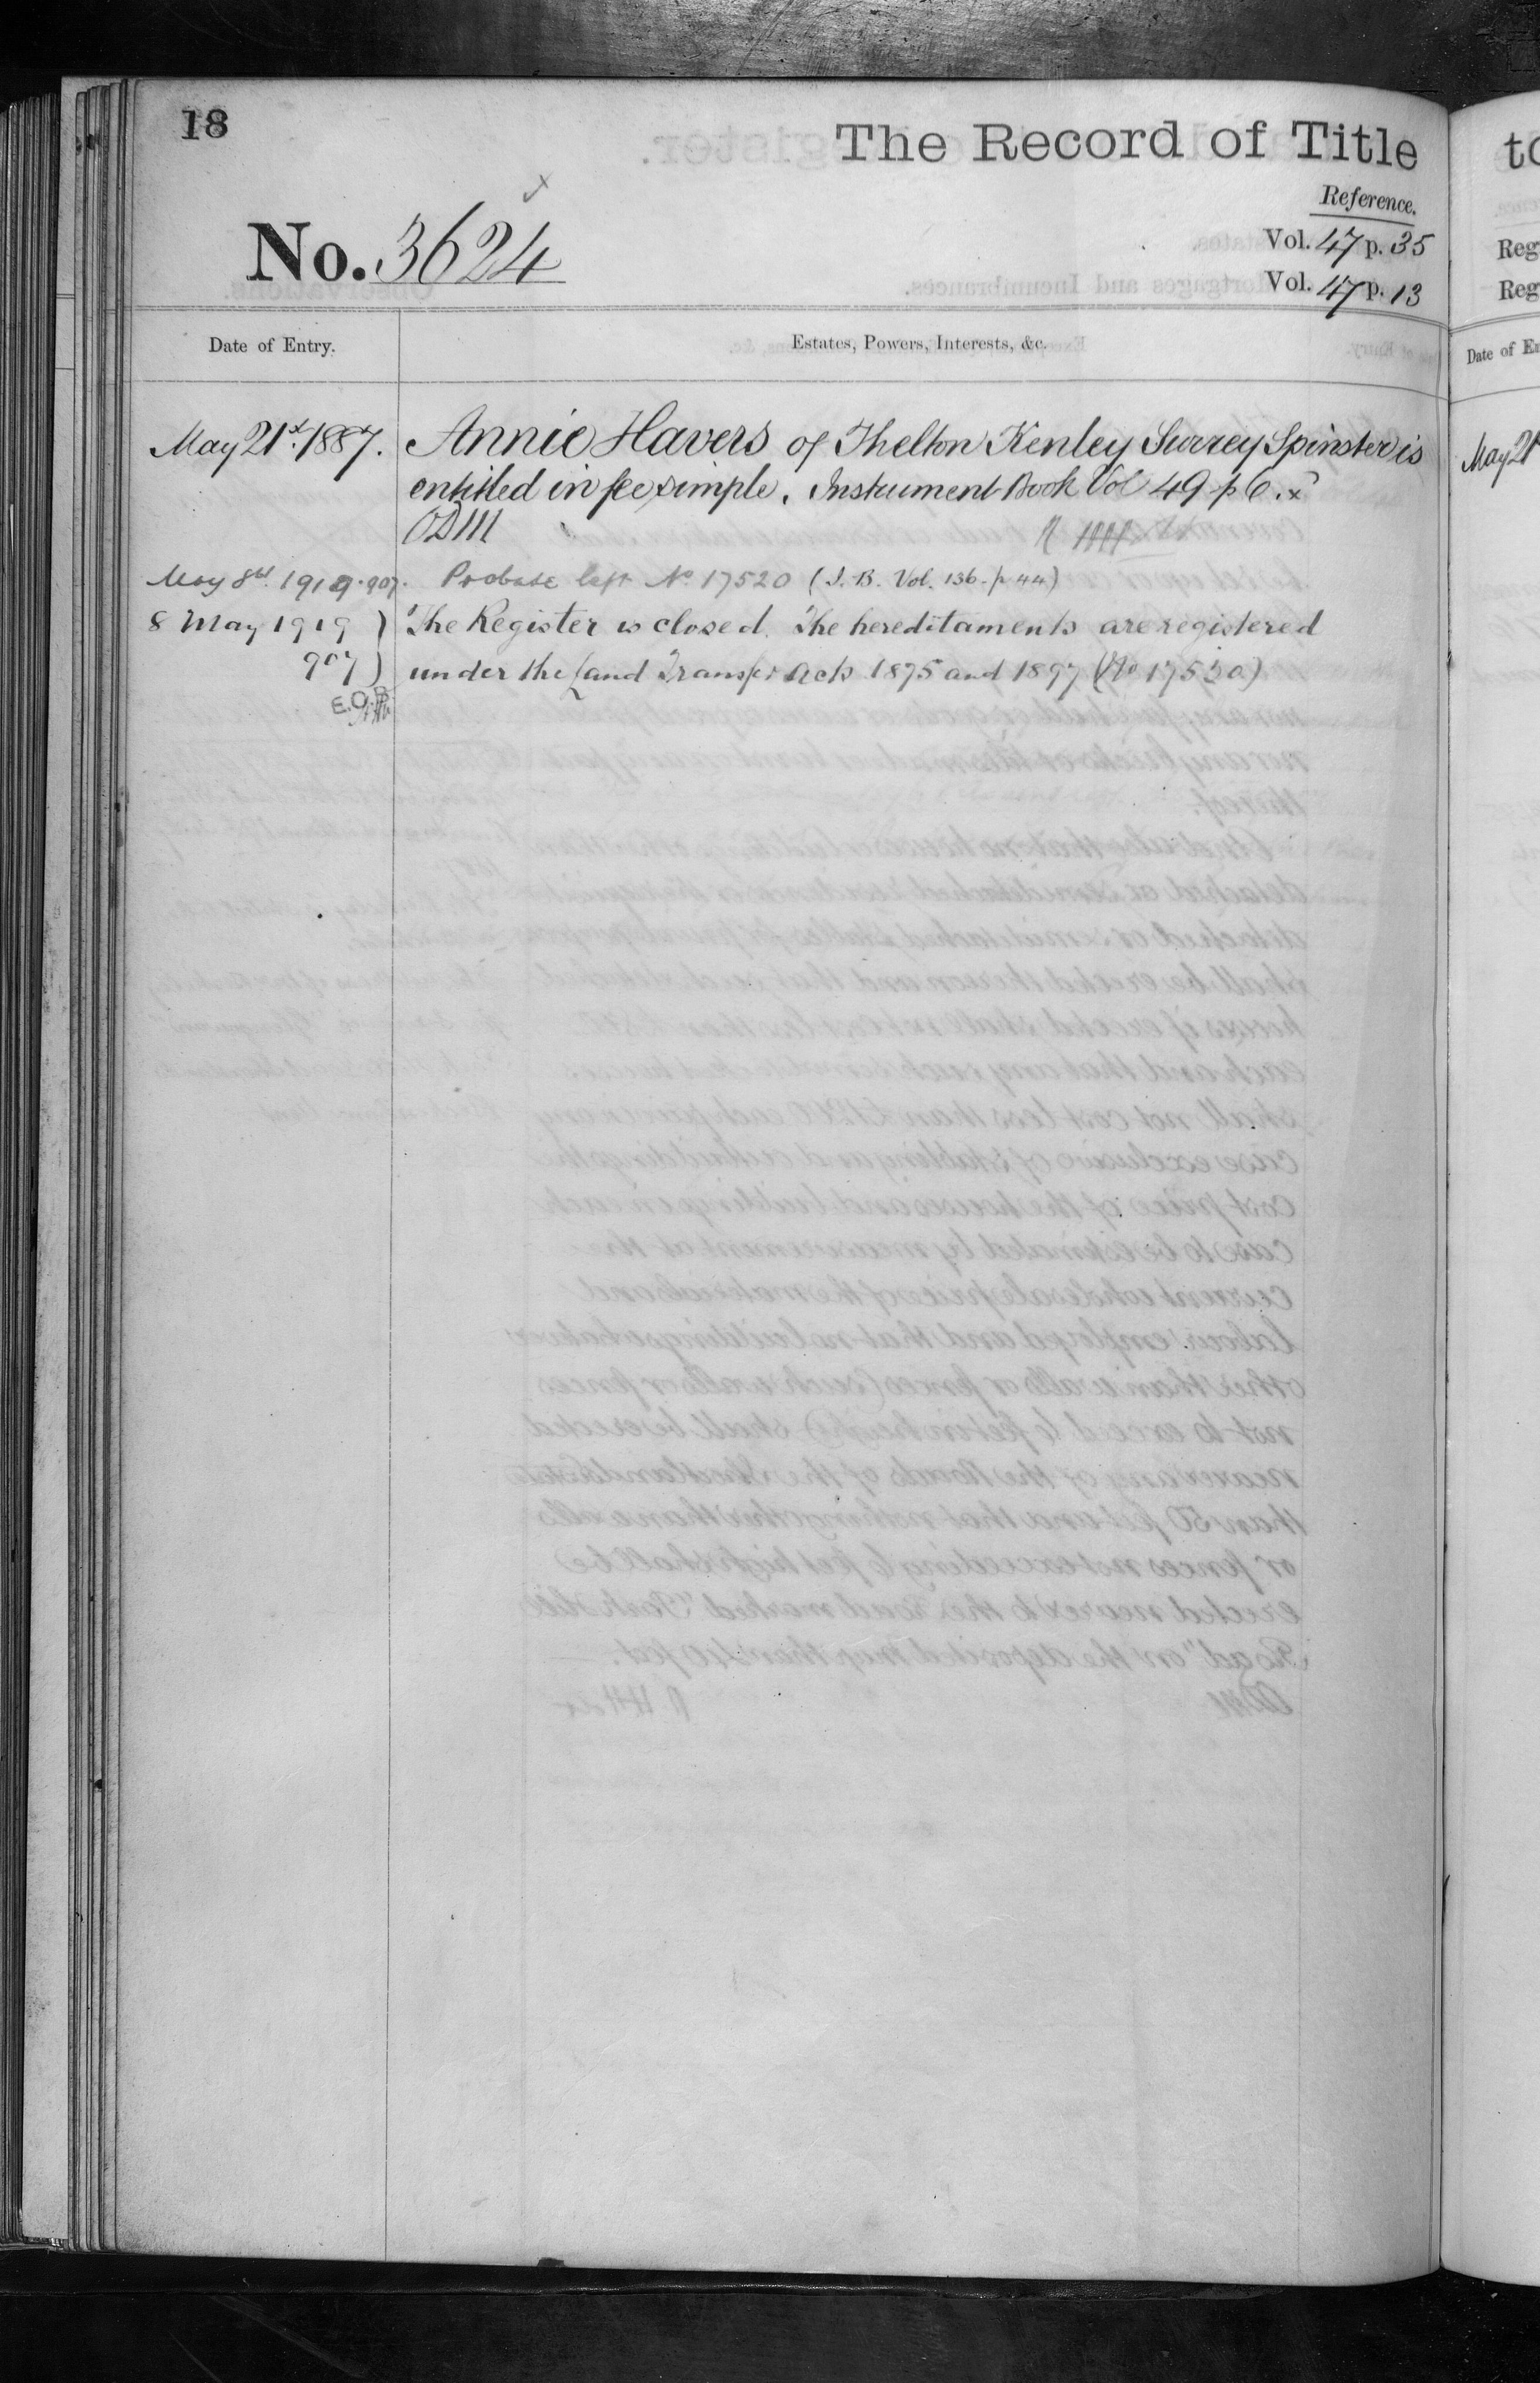 18
The Record of Title
Reference.
No. 3624
Vol. 47 p. 35
Vol. 47 p. 13
Date of Entry.
Estates, Powers, Interests, &c.
May 21st. 1887.
Annie Havers of Thelton Kenley Surrey Spinster is
entitled in fee simple. Instrument Book Vol 49 p 6. x
May 8th. 1919. 907.
Probate left No. 17520 (I. B. Vol. 136 - p 44)
8 May 1919 )
The Register is closed. The hereditaments are registered
907 )
under the Land Transfer Acts 1875 and 1897 (No 17530)
E.O.B.
Reg
Reg
Date of En
May 21